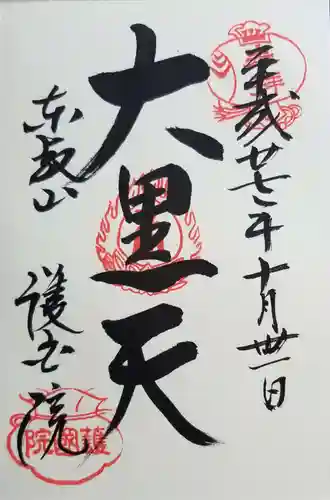 平成廿七年十月卅一日
大黒天
東叡山
護国院
護國院